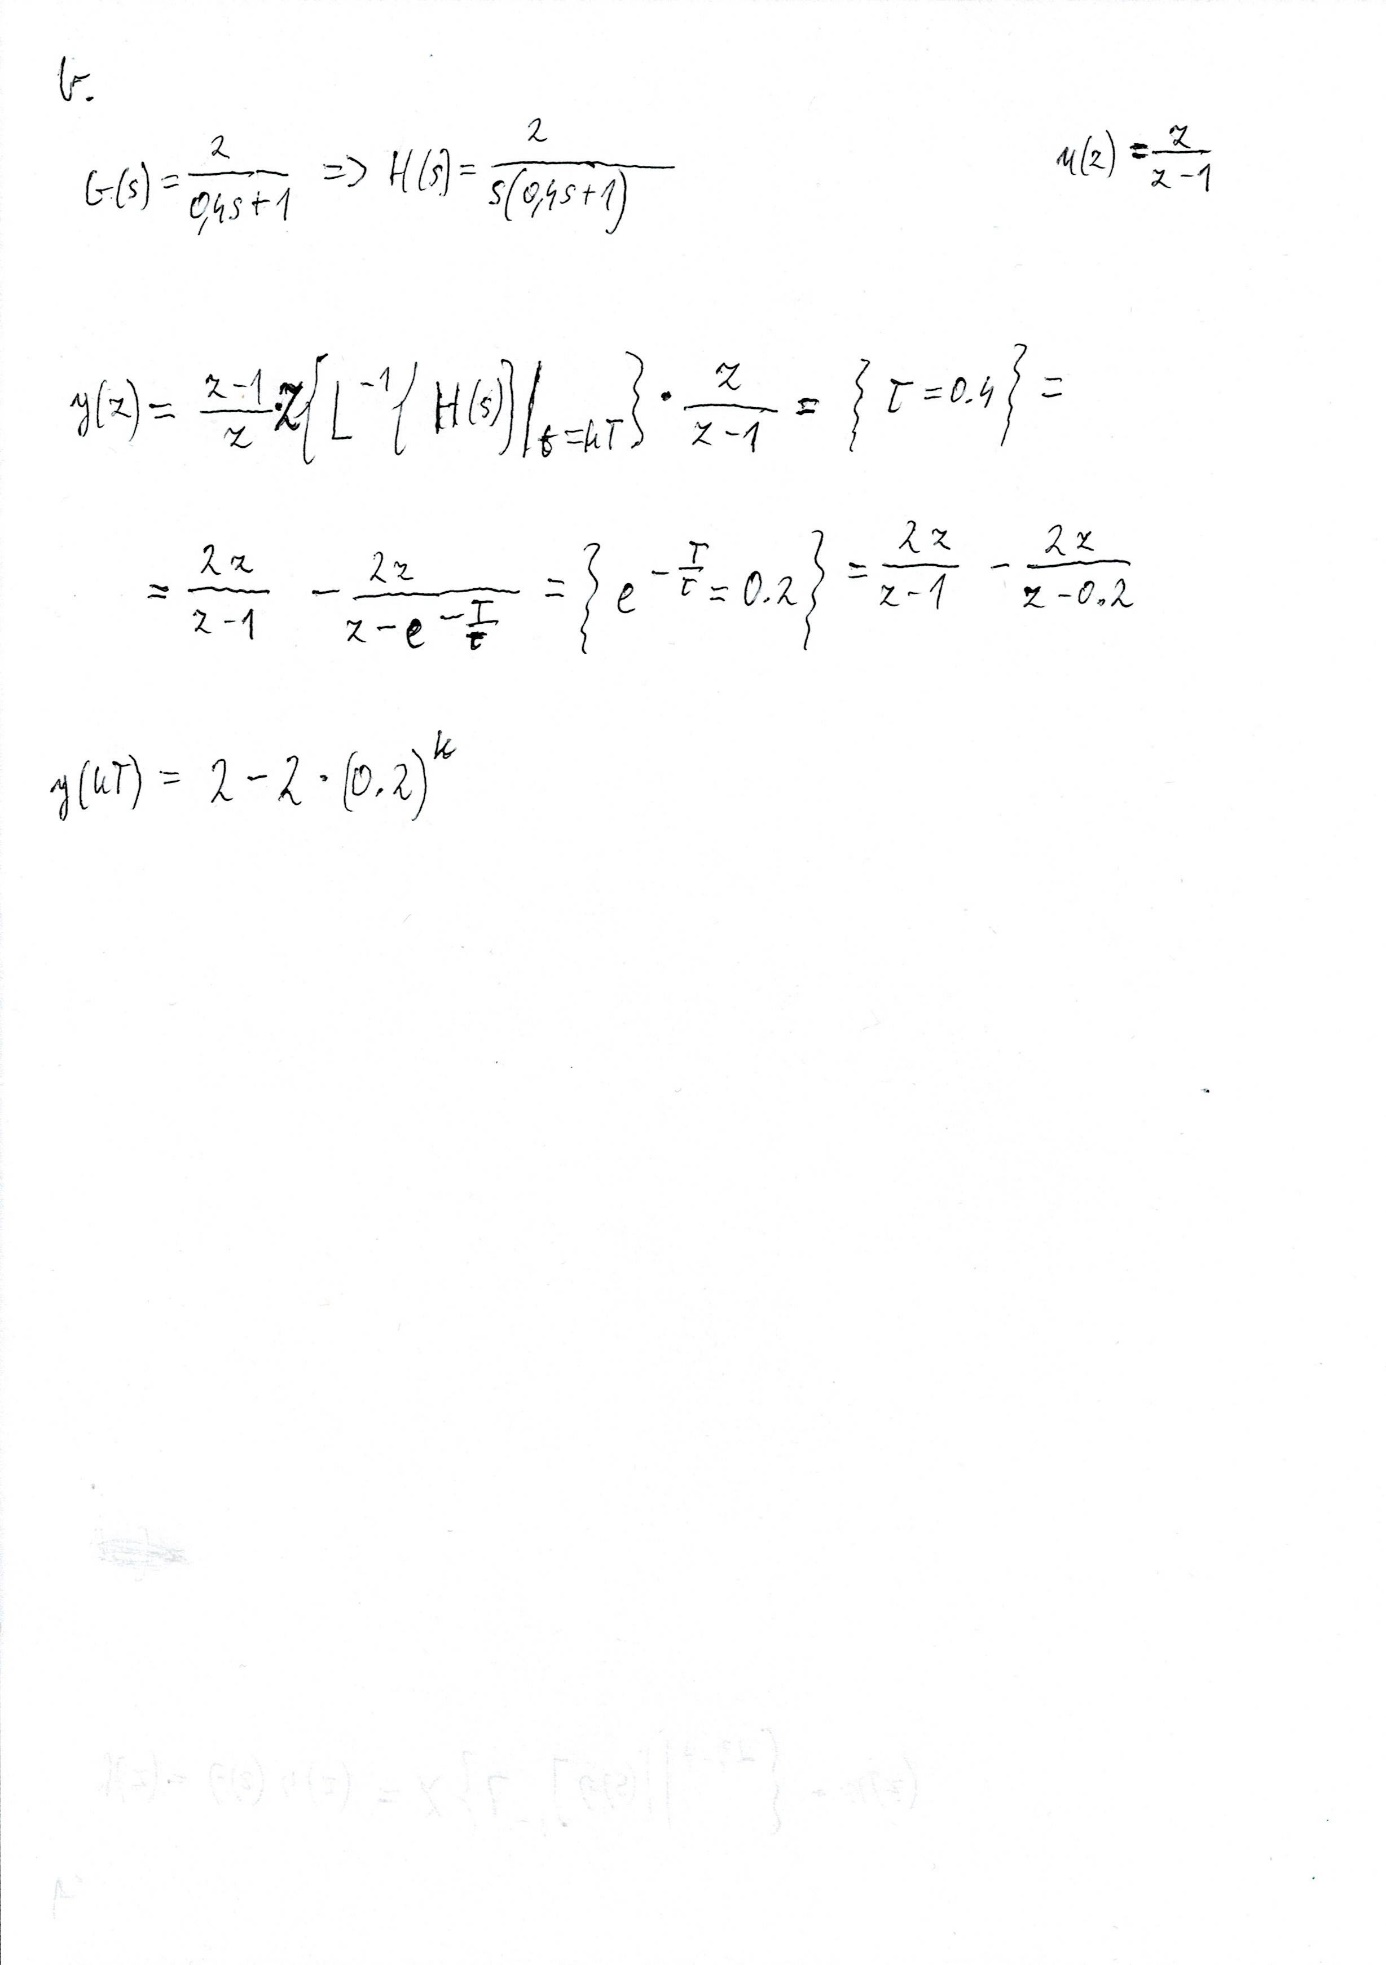 b.
G(s) = 2/(0,4s+1) => H(s) = 2/(s(0,4s+1)) u(z) = z/(z-1)
y(z) = (z-1)/z · Z{L^-1{H(s)}|t=kT} · z/(z-1) = {τ = 0.4} =
= 2z/(z-1) - 2z/(z-e^(-T/τ)) = {e^(-T/τ) = 0.2} = 2z/(z-1) - 2z/(z-0.2)
y(kT) = 2 - 2 · (0.2)^k